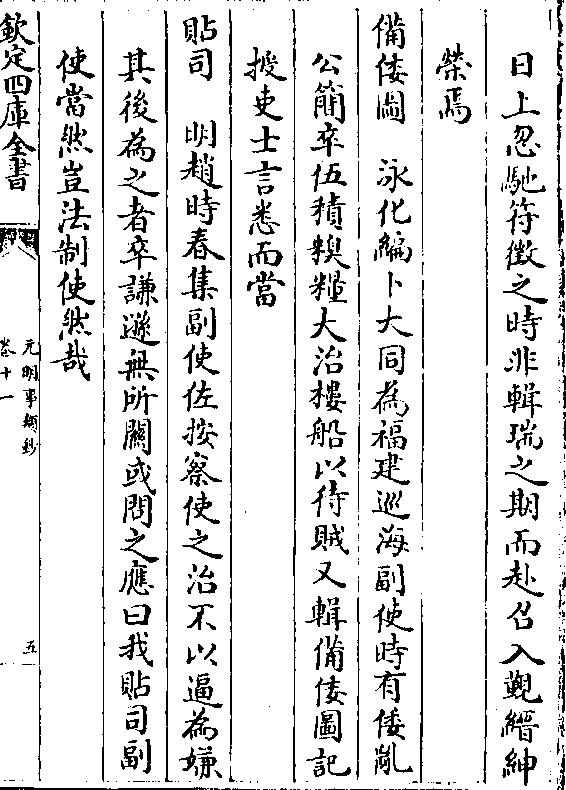 日上忽馳符徵之時非輯瑞之期而赴召入覲縉紳
榮焉
備倭圖　泳化編卜大同為福建巡海副使時有倭亂
公簡卒伍積糗糧大治樓船以待賊又輯備倭圖記
授吏士言悉而當
貼司　明趙時春集副使佐按察使之治不以逼為嫌
其後為之者卒謙遜無所關或問之應曰我貼司副
使當然豈法制使然哉
欽定四庫全書
元明事類鈔
卷十一
五